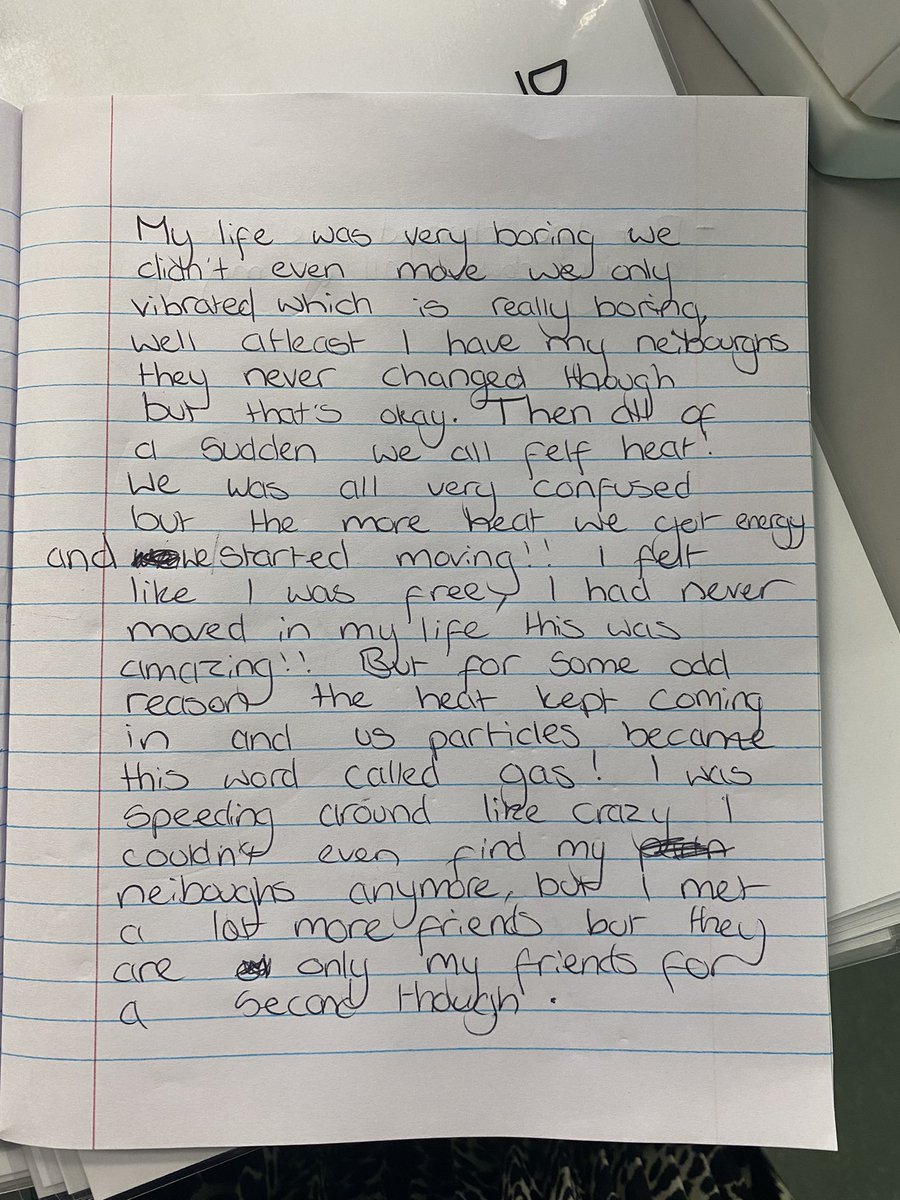 D
My life was very boring we
didn't even move we only
vibrated which is really boring,
well atleast I have my neibourghs
they never changed though
but that's okay. Then all of
a sudden we all felt heat!
We was all very confused
but the more heat we got energy
and we started moving!! I felt
like I was free, I had never
moved in my life this was
amazing!! But for some odd
reason the heat kept coming
in and us particles became
this word called gas! I was
speeding around like crazy I
couldn't even find my
neiboughs anymore, but I met
a lot more friends but they
are only my friends for
a second though.